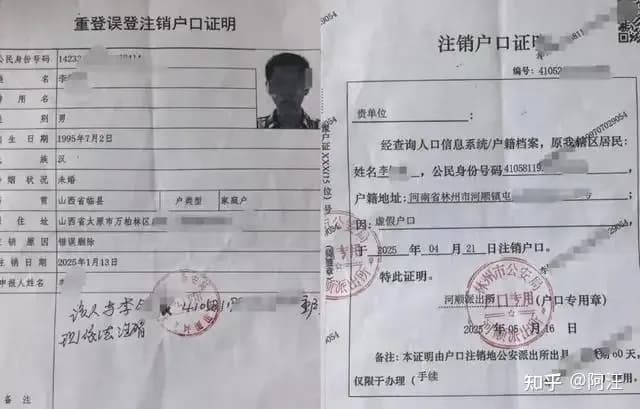 重登误登注销户口证明
公民身份号码 14232
姓 名 李
曾用名
性 别 男
出生日期 1995年7月2日
民 族 汉
婚姻状况 未婚
籍 贯 山西省临县 户类型 家庭户
住 址 山西省太原市万柏林区
注销原因 错误删除
注销日期 2025年1月13日
申报人姓名 李
该人与李 41058119
现依法注销
备注
注销户口证明
编号:41052
贵单位:
经查询人口信息系统/户籍档案,原我辖区居民:
姓名李 ,公民身份号码41058119
户籍地址:河南省林州市河顺镇
因:虚假户口
于 2025 年 04 月 21 日注销户口。
特此证明。
林州市公安局
户口专用
河顺派出所
河顺派出所(户口专用章)
2025 年 05 月 16 日
备注:本证明由户口注销地公安派出所出具
仅限于办理(手续
知乎 @阿汪